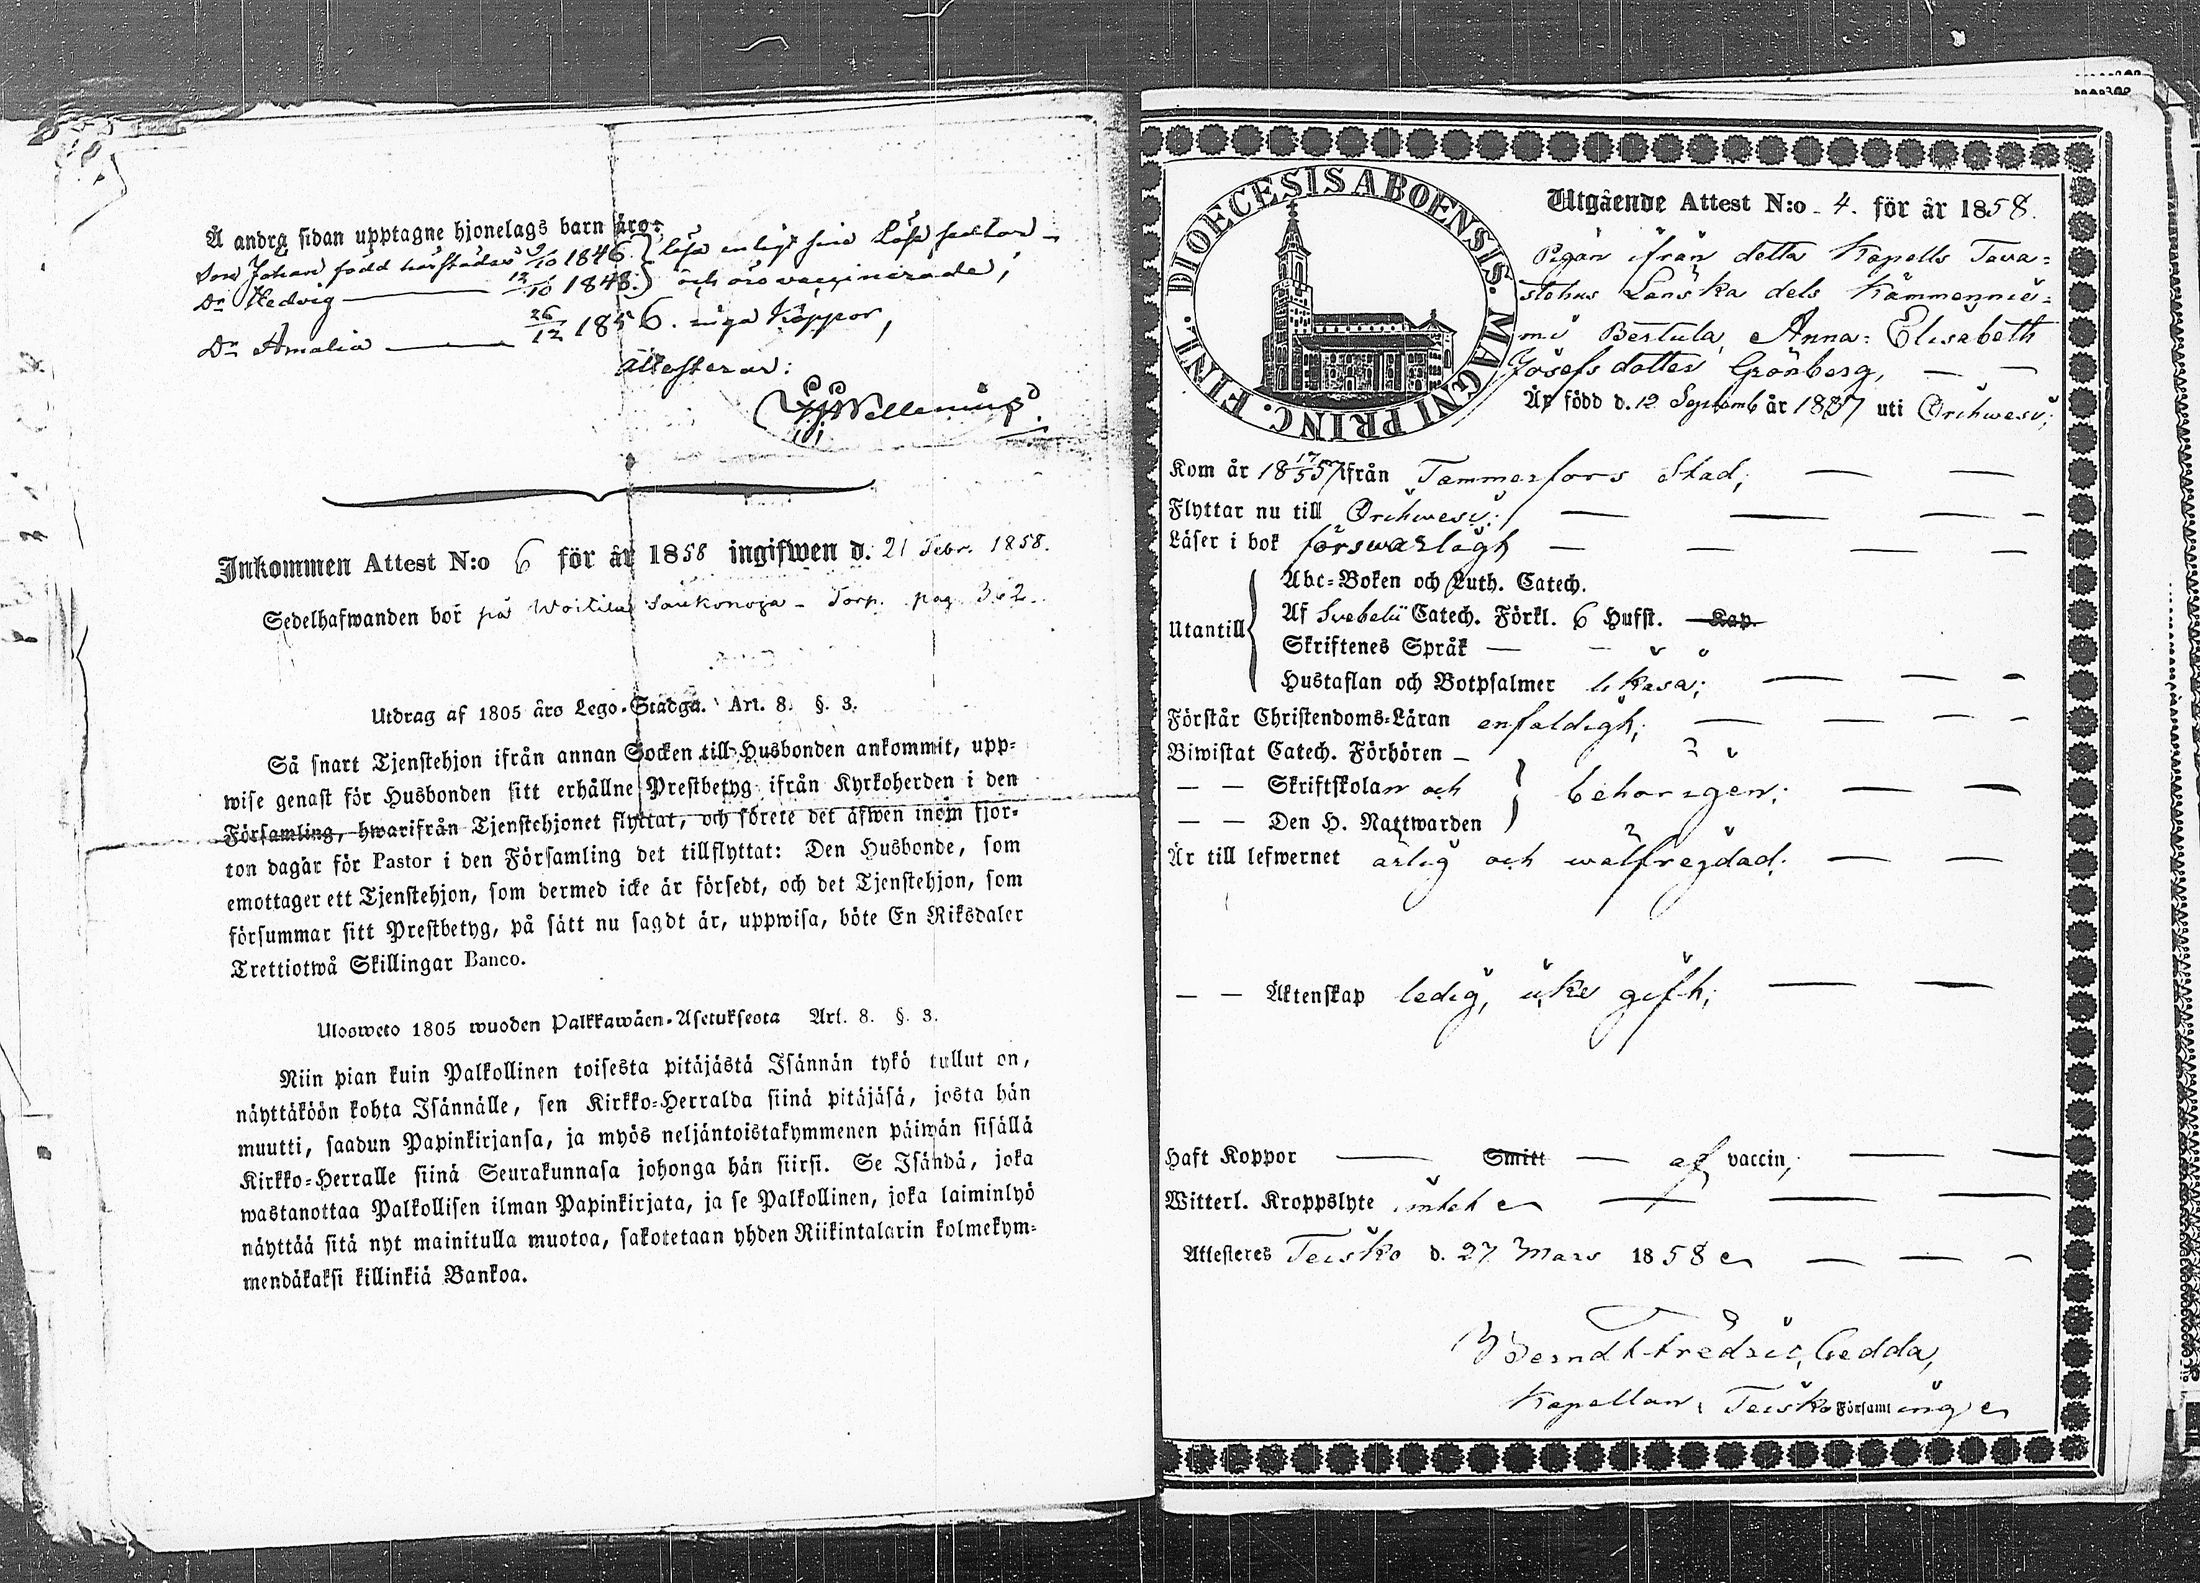 Å andra sidan upptagne hjonelags barn äro:
Son Johan född härstädes 9/10 1846.
Dr Hedwig — 12/10 1848. och äro vaccinerade;
Dr Amalia — 26/12 1856. inga Koppor,
Attesterar:
Inkommen Attest N:o 6 för år 1858 ingifwen d. 21 Febr. 1858.
Sedelhafwanden bor på Woitila Torp. pag. 362.
Utdrag af 1805 års Lego-Stadga. Art. 8. §. 3.
Så snart Tjenstehjon ifrån annan Socken till Husbonden ankommit, upp-
wise genast för Husbonden sitt erhållne Prestbetyg ifrån Kyrkoherden i den
Församling, hwarifrån Tjenstehjonet flyttat, och förete det äfwen inom fjor-
ton dagar för Pastor i den Församling det tillflyttat: Den Husbonde, som
emottager ett Tjenstehjon, som dermed icke är försedt, och det Tjenstehjon, som
försummar sitt Prestbetyg, på sätt nu sagdt är, uppwisa, böte En Riksdaler
Trettiotwå Skillingar Banco.
Ulosweto 1805 wuoden Palkkawäen-Asetuksesta Art. 8. §. 3.
Niin pian kuin Palkollinen toisesta pitäjästä Isännän tykö tullut on,
näyttäköön kohta Isännälle, sen Kirkko-Herralda siinä pitäjäsä, josta hän
muutti, saadun Papinkirjansa, ja myös neljäntoistakymmenen päiwän sisällä
Kirkko-Herralle siinä Seurakunnasa johonga hän siirsi. Se Isändä, joka
wastanottaa Palkollisen ilman Papinkirjata, ja se Palkollinen, joka laiminlyö
näyttää sitä nyt mainitulla muotoa, sakotetaan yhden Riikintalarin kolmekym-
mendäkaksi killinkiä Bankoa.
DIOECESIS ABOENSIS. MAGNI PRINC. FINL.
Utgående Attest N:o 4. för år 1858.
Pigan ifrån detta Kapells Tava-
stehus Länska dels Kämmennie-
mi Bertula, Anna Elisabeth
Josefsdotter Grönberg, — —
Är född d. 12 Septemb år 1837 uti Orihwesi;
Kom år 18 17/5 57 ifrån Tammerfors Stad; — —
Flyttar nu till Orihwesi; — — — —
Läser i bok förswarligt — — — —
Utantill
Abc-Boken och Luth. Catech.
Af Svebelii Catech. Förkl. 6 Hufst. Kap.
Skriftenes Språk — —
Hustaflan och Botpsalmer likaså; — — —
Förstår Christendoms-Läran enfaldigt; — — — —
Biwistat Catech. Förhören —
— — Skriftskolan och behörigen; — —
— — Den H. Nattwarden
Är till lefwernet ärlig och wälfrejdad; — —
— — Äktenskap ledig, icke gift; — —
Haft Koppor — Smitt — af vaccin; — —
Witterl. Kroppslyte intet — — —
Attesteres Teisko d. 27 Mars 1858 — — —
Berndt Fredric Gedda,
Kapellan i Teisko Församling